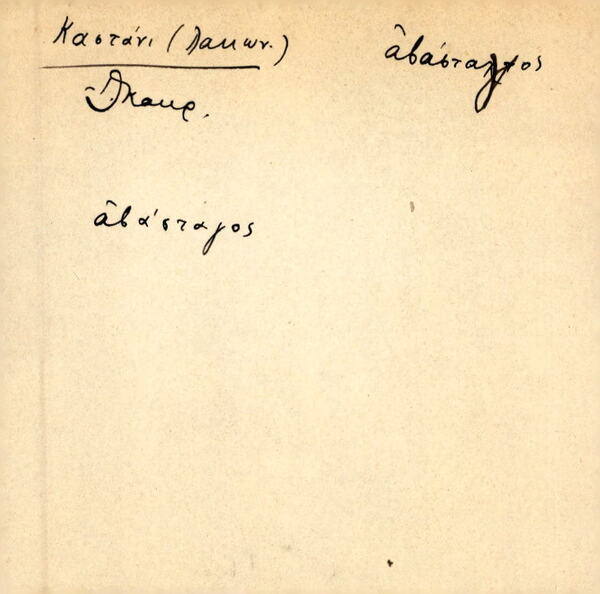 Καστάνι (Λακων.)
ἀβάσταγος
ἀβάσταγος